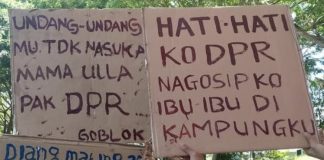 UNDANG-UNDANG
MU TDK NASUKA
MAMA ULLA
PAK DPR
GOBLOK
HATI-HATI
KO DPR
NAGOSIP KO
IBU-IBU DI
KAMPUNGKU